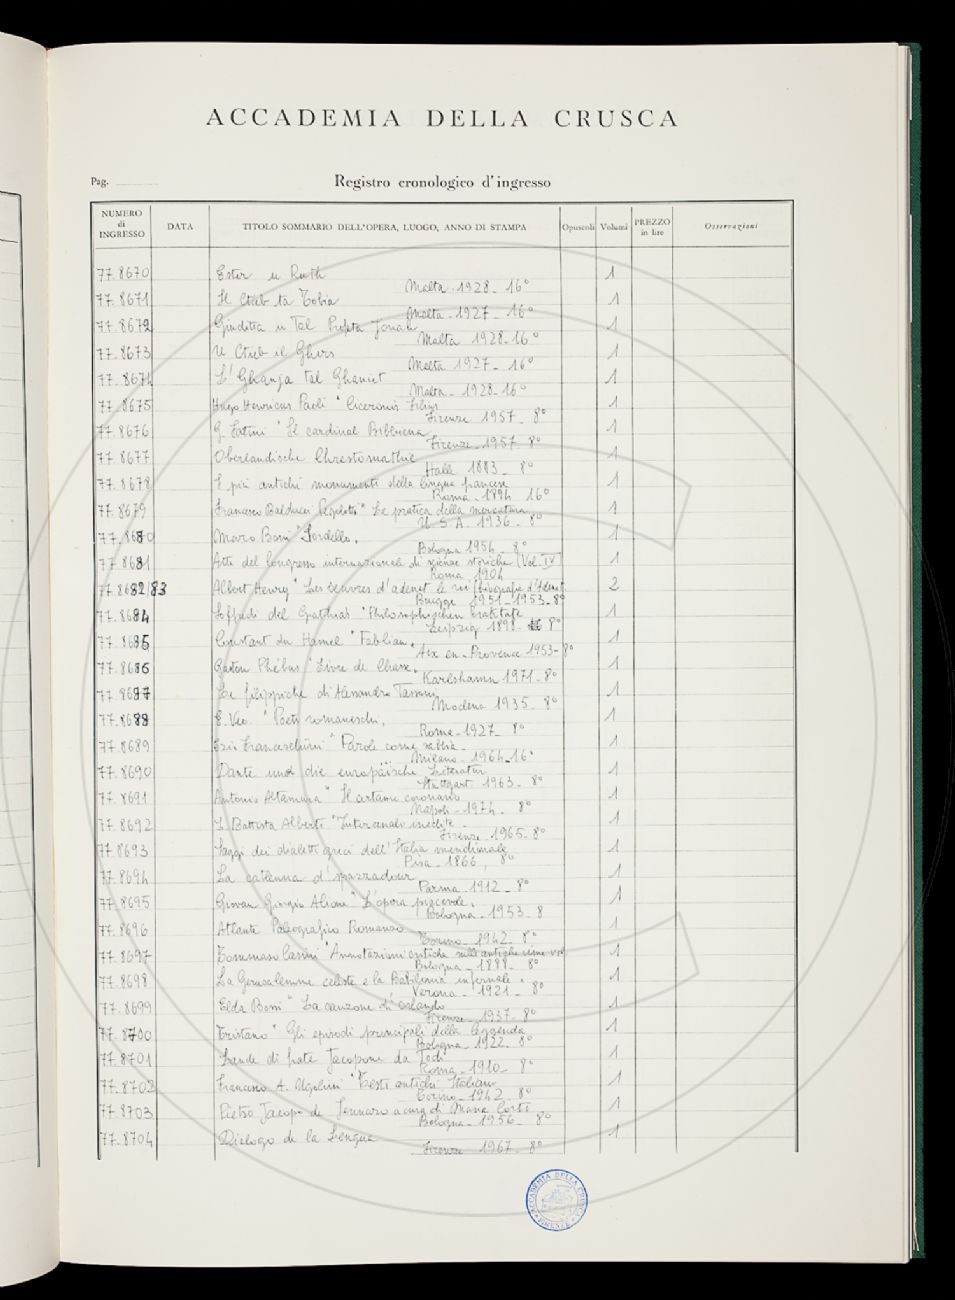 ACCADEMIA DELLA CRUSCA
Pag.
Registro cronologico d'ingresso
NUMERO di INGRESSO DATA TITOLO SOMMARIO DELL'OPERA, LUOGO, ANNO DI STAMPA Opuscoli Volumi PREZZO in lire Osservazioni
77.8670 Ester u Ruth 1
Malta 1928_ 16°
77.8671 Il Ctieb ta Tobia 1
Malta_1927_ 16°
77.8672 Giuditta u Tal Profeta Jonah 1
Malta 1928_16°
77.8673 U Ctieb il 1
Malta 1927_ 16°
77.8674 L'Ghanja tal Ghaniet 1
Malta_ 1928_16°
77.8675 Hugo Henricus Paoli "Ciceronis Filius 1
Firenze 1957_ 8°
77.8676 G. Fatini "Il cardinal Bibbiena 1
Firenze_1957_ 8°
77.8677 Oberlandische Chrestomathie 1
Halle 1883_ 8°
77.8678 I più antichi monumenti della lingua francese 1
Roma_1894 16°
77.8679 Francesco Balducci Pegolotti "La pratica della mercatura 1
U S A. 1936_ 8°
77.8680 Marco Boni "Sordello, 1
Bologna 1954_ 8°
77.8681 Atti del Congresso internazionale di scienze storiche (Vol. IV) 1
Roma 1904
77.8682/83 Albert Henry "Les oeuvres d'adenet le roi (biografie d'Adenet 2
Brugge 1951_1953_8°
77.8684 "Philosophischen Traktate 1
Leipzig 1898_ 8°
77.8685 Constant du Hamel "Fablian, 1
Aix en_Provence 1953_8°
77.8686 Gaston Phébus "Livre de Chasse, 1
Karlshamn 1971_8°
77.8687 Le filippiche di Alessandro Tassoni 1
Modena 1935_8°
77.8688 E. Veo. "Poeti romaneschi, 1
Roma_1927_ 8°
77.8689 Ezio Franceschini "Parole come sabbia_ 1
Milano_1964_16°
77.8690 Dante und die europäische Literatur 1
Stuttgart 1963_ 8°
77.8691 Antonio Altamura "Il certame coronario 1
Napoli_1974_ 8°
77.8692 L. Battista Alberti "Intercenali inedite_ 1
Firenze_1965_8°
77.8693 Saggi dei dialetti greci dell'Italia meridionale 1
Pisa_1866, 8°
77.8694 La catlenna d'spazzadour 1
Parma_1912_8°
77.8695 Giovan Giorgio Alione "L'opera piacevole, 1
Bologna_1953_8
77.8696 Atlante Paleografico Romanzo 1
Torino_1942_8°
77.8697 Tommaso Casini "Annotazioni critiche sulle antiche rime volg 1
Bologna_1888_ 8°
77.8698 La Gerusalemme celeste e la Babilonia infernale, 1
Verona_1921_ 8°
77.8699 Elda Bossi "La canzone di Orlando 1
Firenze_1937_8°
77.8700 Tristano "Gli episodi principali della leggenda 1
Bologna_1922_ 8°
77.8701 Laude di frate Jacopone da Todi 1
Roma_1910_ 8°
77.8702 Francesco A. Ugolini "Testi antichi Italiani 1
Torino_1942_ 8°
77.8703 Pietro Jacopo de Jennaro a cura di Maria Corti 1
Bologna_1956_ 8°
77.8704 Dialogo de la Lengua 1
Firenze 1967_ 8°
ACCADEMIA DELLA CRUSCA
FIRENZE